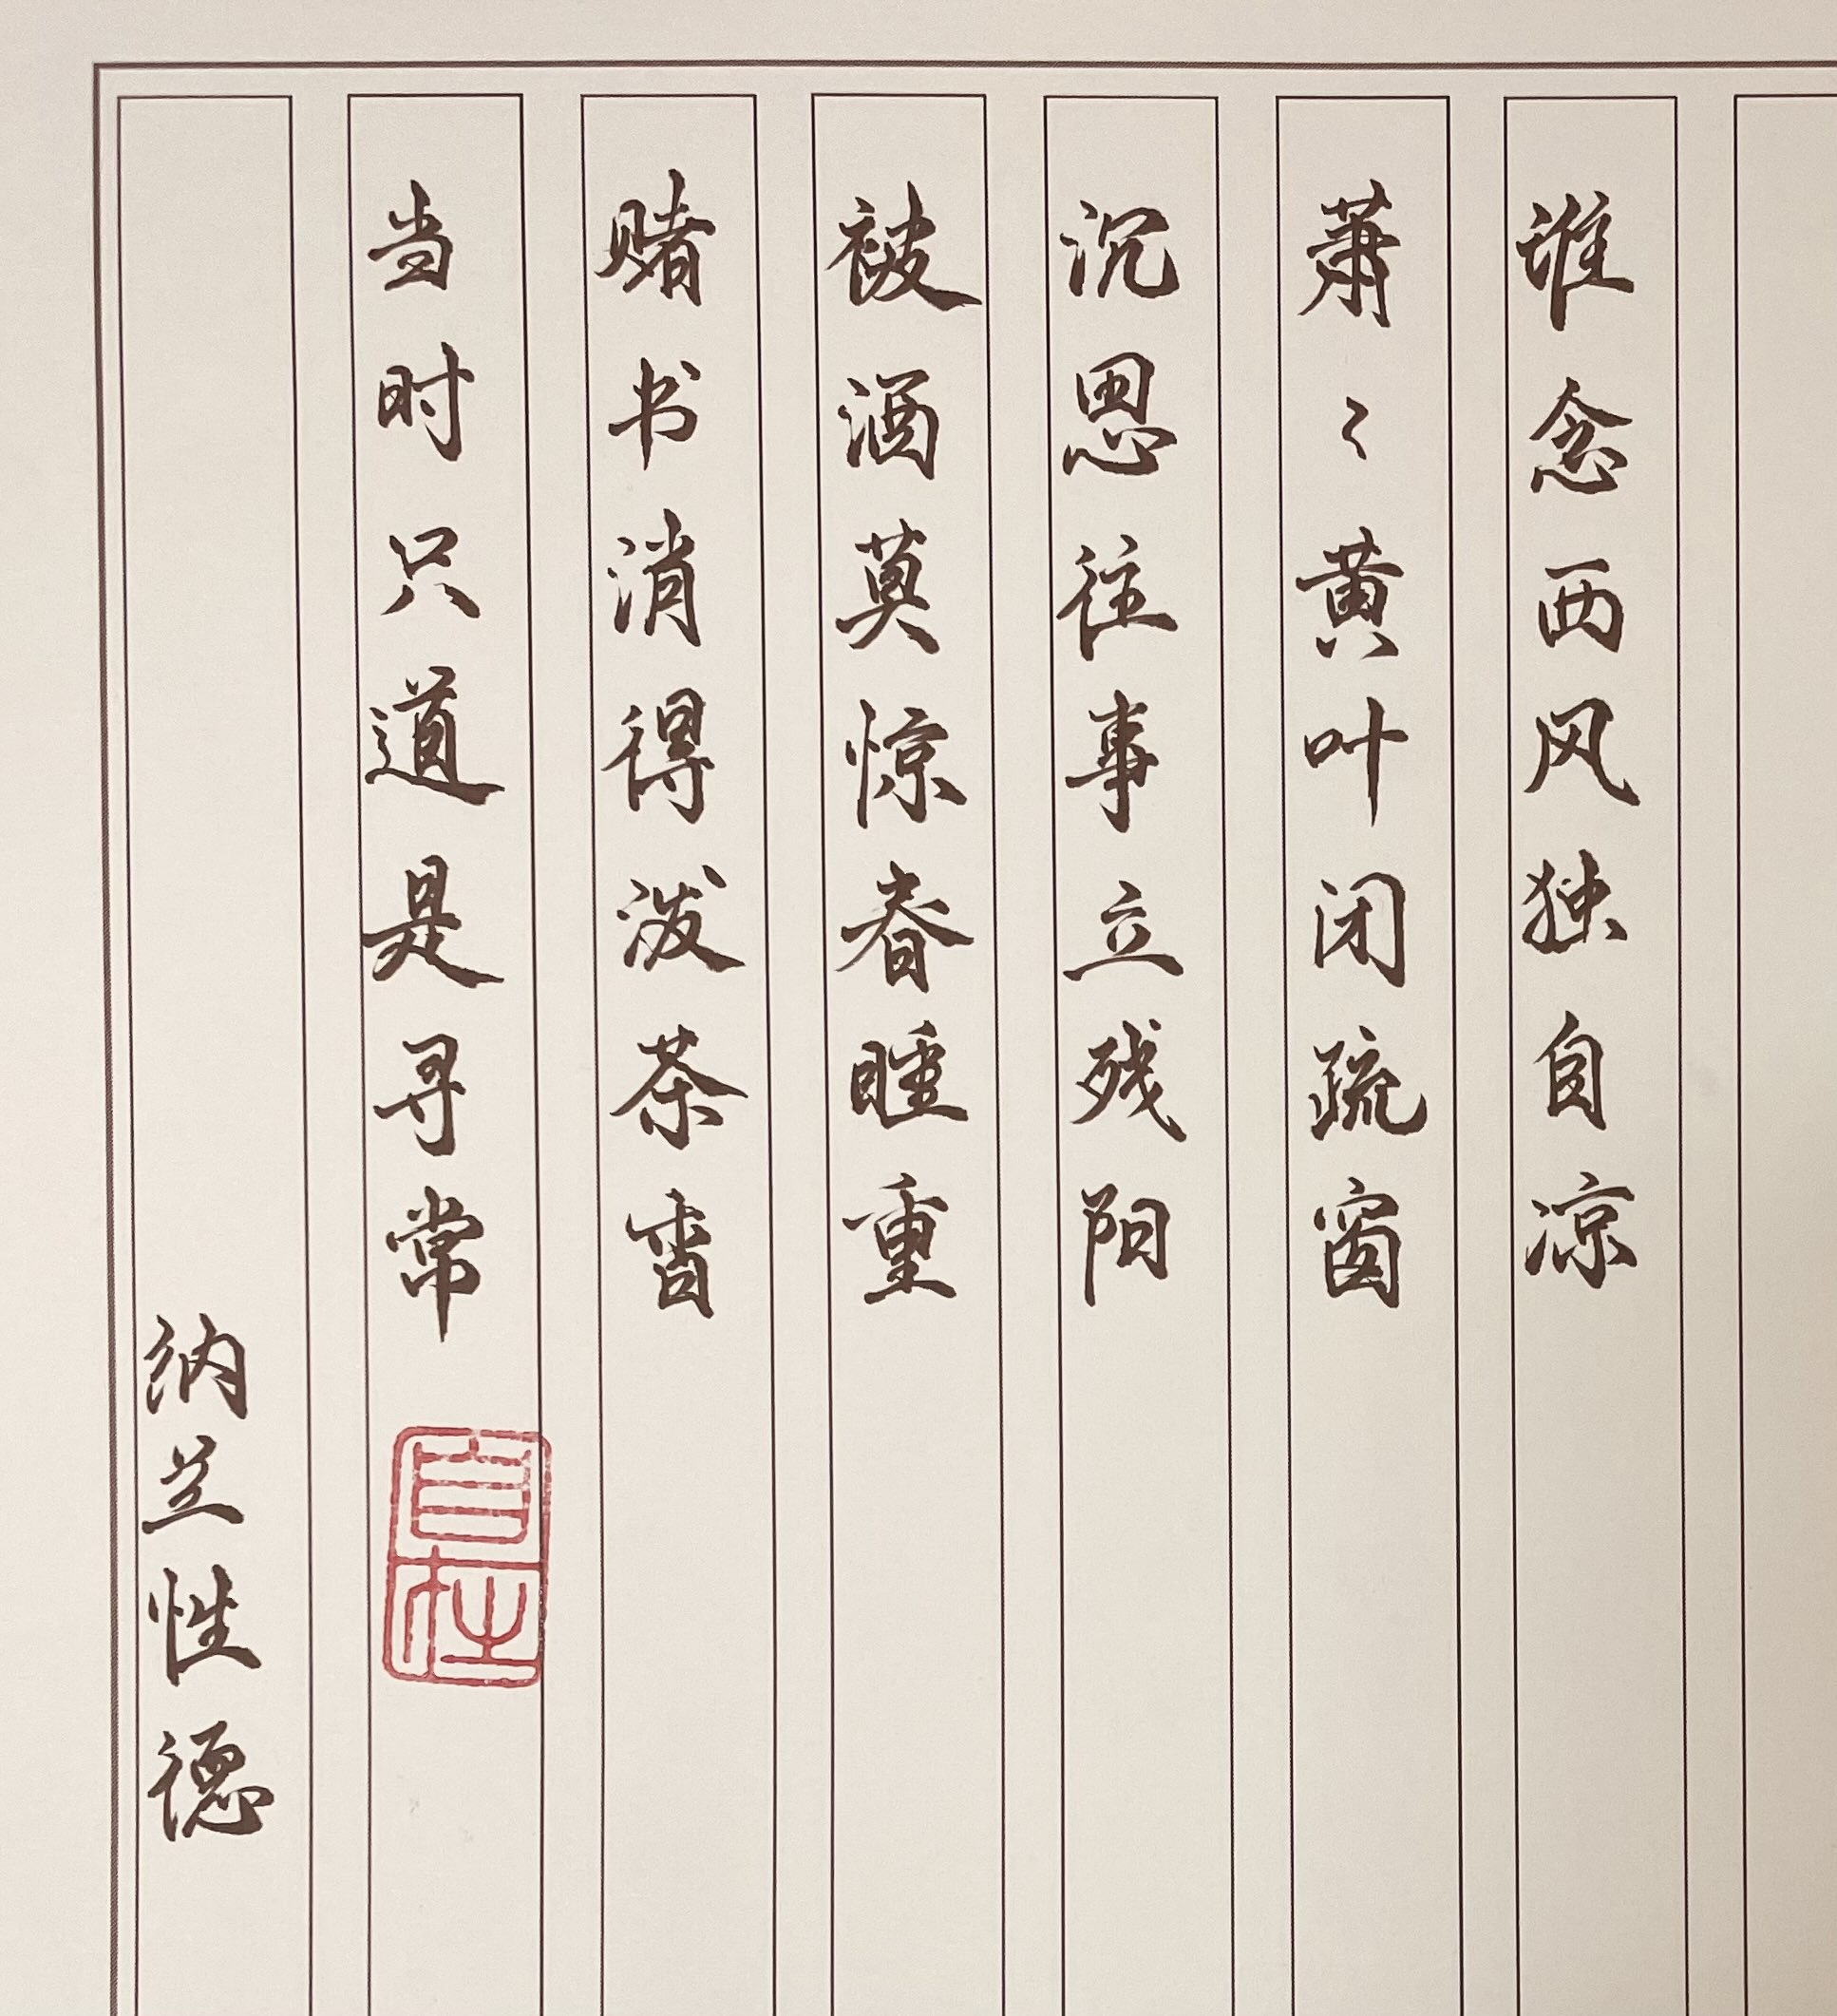 谁念西风独自凉
萧〻黄叶闭疏窗
沉思往事立残阳
被酒莫惊春睡重
赌书消得泼茶香
当时只道是寻常
自在
纳兰性德